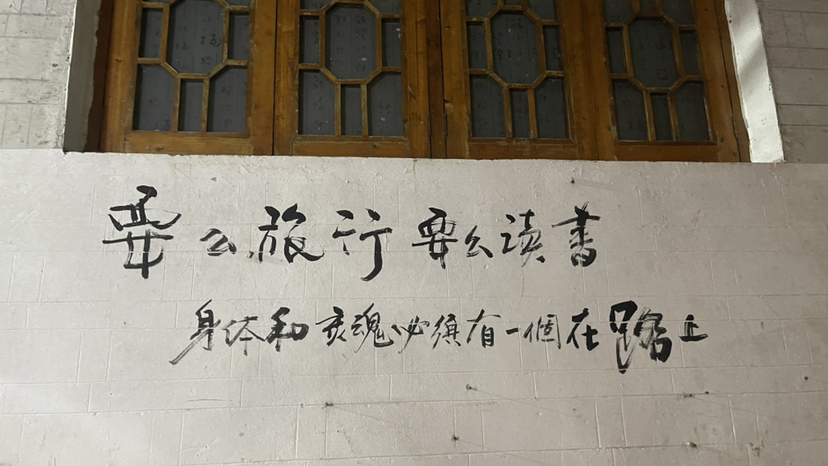 要么旅行 要么读书
身体和灵魂必须有一個在路上